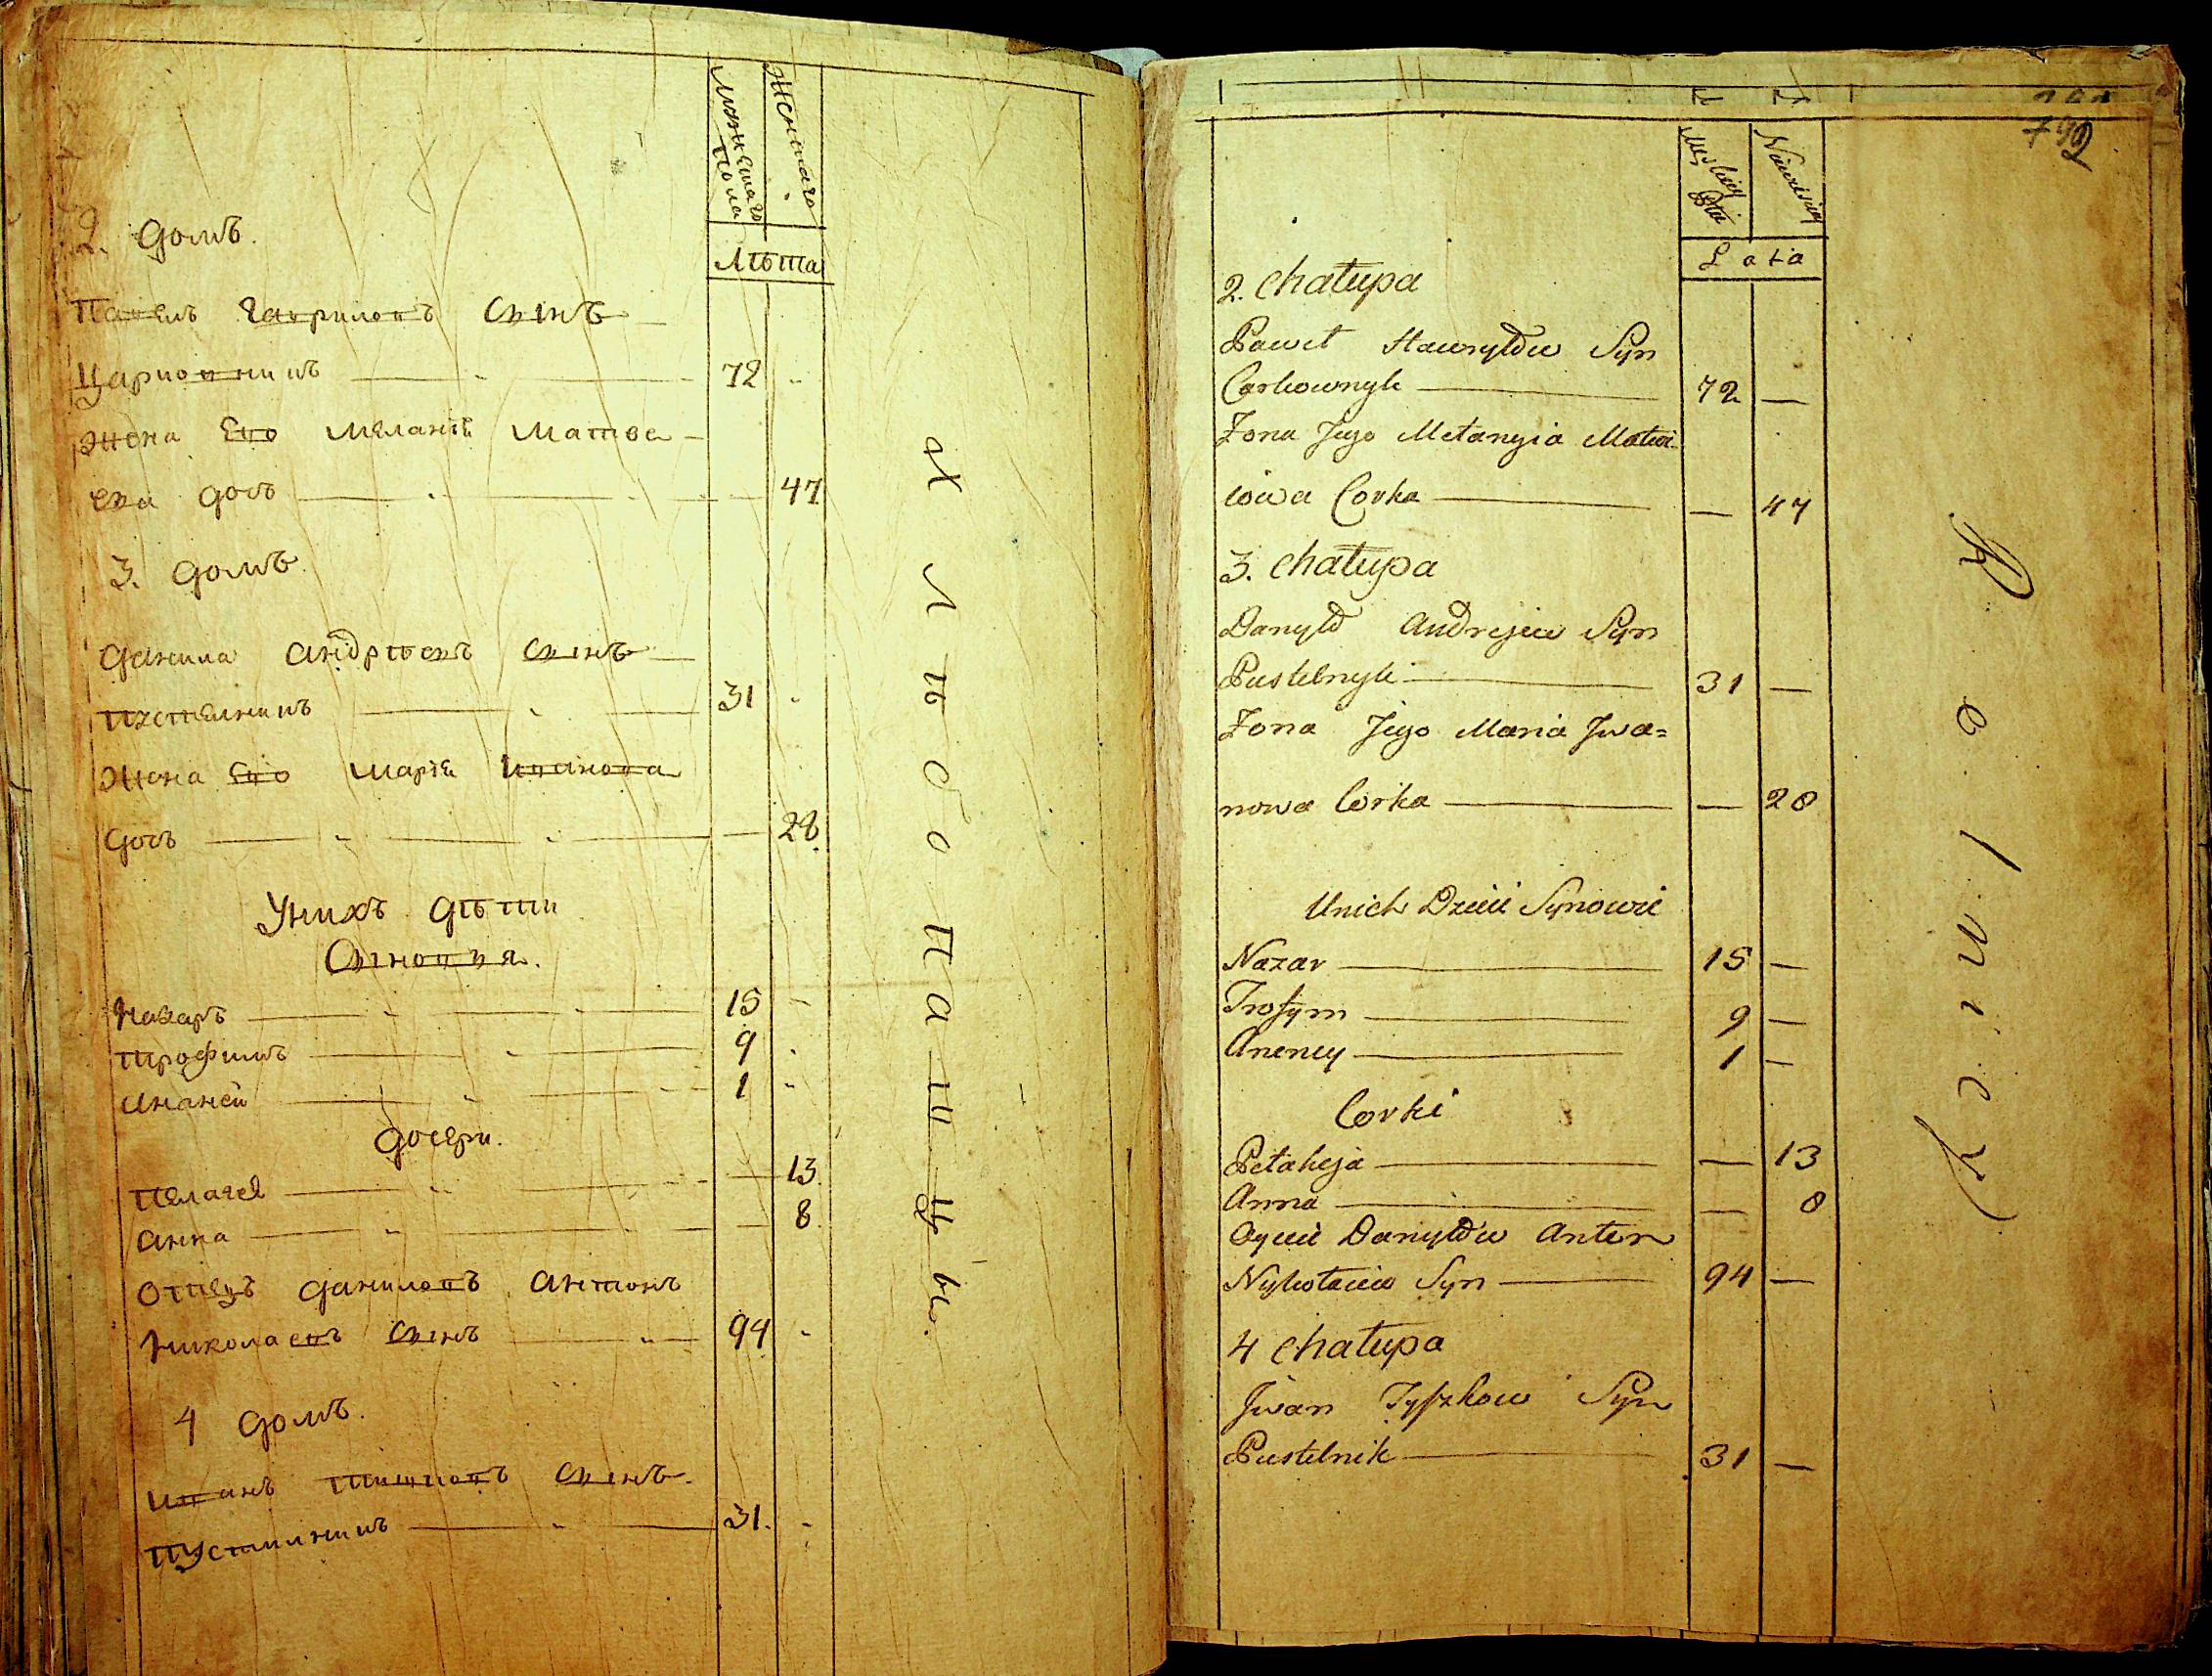 Мужескаго пола
Женскаго
Лѣта
2. Домъ.
Павелъ Гаврыловъ Сынъ
Царковникъ 72
Жена Его Меланія Матве-
ева дочь 47
3. Домъ.
Данила Андрѣевъ Сынъ
Пустелникъ 31
Жена Его Марія Иванова
дочь 28.
У нихъ Дѣти
Сыновья.
Назаръ 15
Трофимъ 9
Ананей 1
Дочери.
Пелагея 13.
Анна 8.
Отецъ Даниловъ Антонъ
Николаевъ Сынъ 94
4 Домъ.
Иванъ Тишковъ Сынъ.
Пустелникъ 31.
Хлѣбопашцы.
792
Męskiey Płci
Niewieściey
Lata
2. Chałupa
Paweł Hawryłów Syn
Carkownyk 72 —
Żona Jego Mełanyia Matwi-
iowa Corka — 47
3. Chałupa
Danyło Andrejew Syn
Pustelnyk 31 —
Żona Jego Maria Jwa=
nowa Corka — 28
Unich Dzieci Synowie
Nazar 15 —
Trofym 9 —
Aneney 1 —
Corki
Pełaheja — 13
Anna — 8
Oyciec Danyłów Anton
Nykołaiew Syn 94 —
4 Chałupa
Jwan Tyszkow Syn
Pustelnik 31 —
Rolnicy